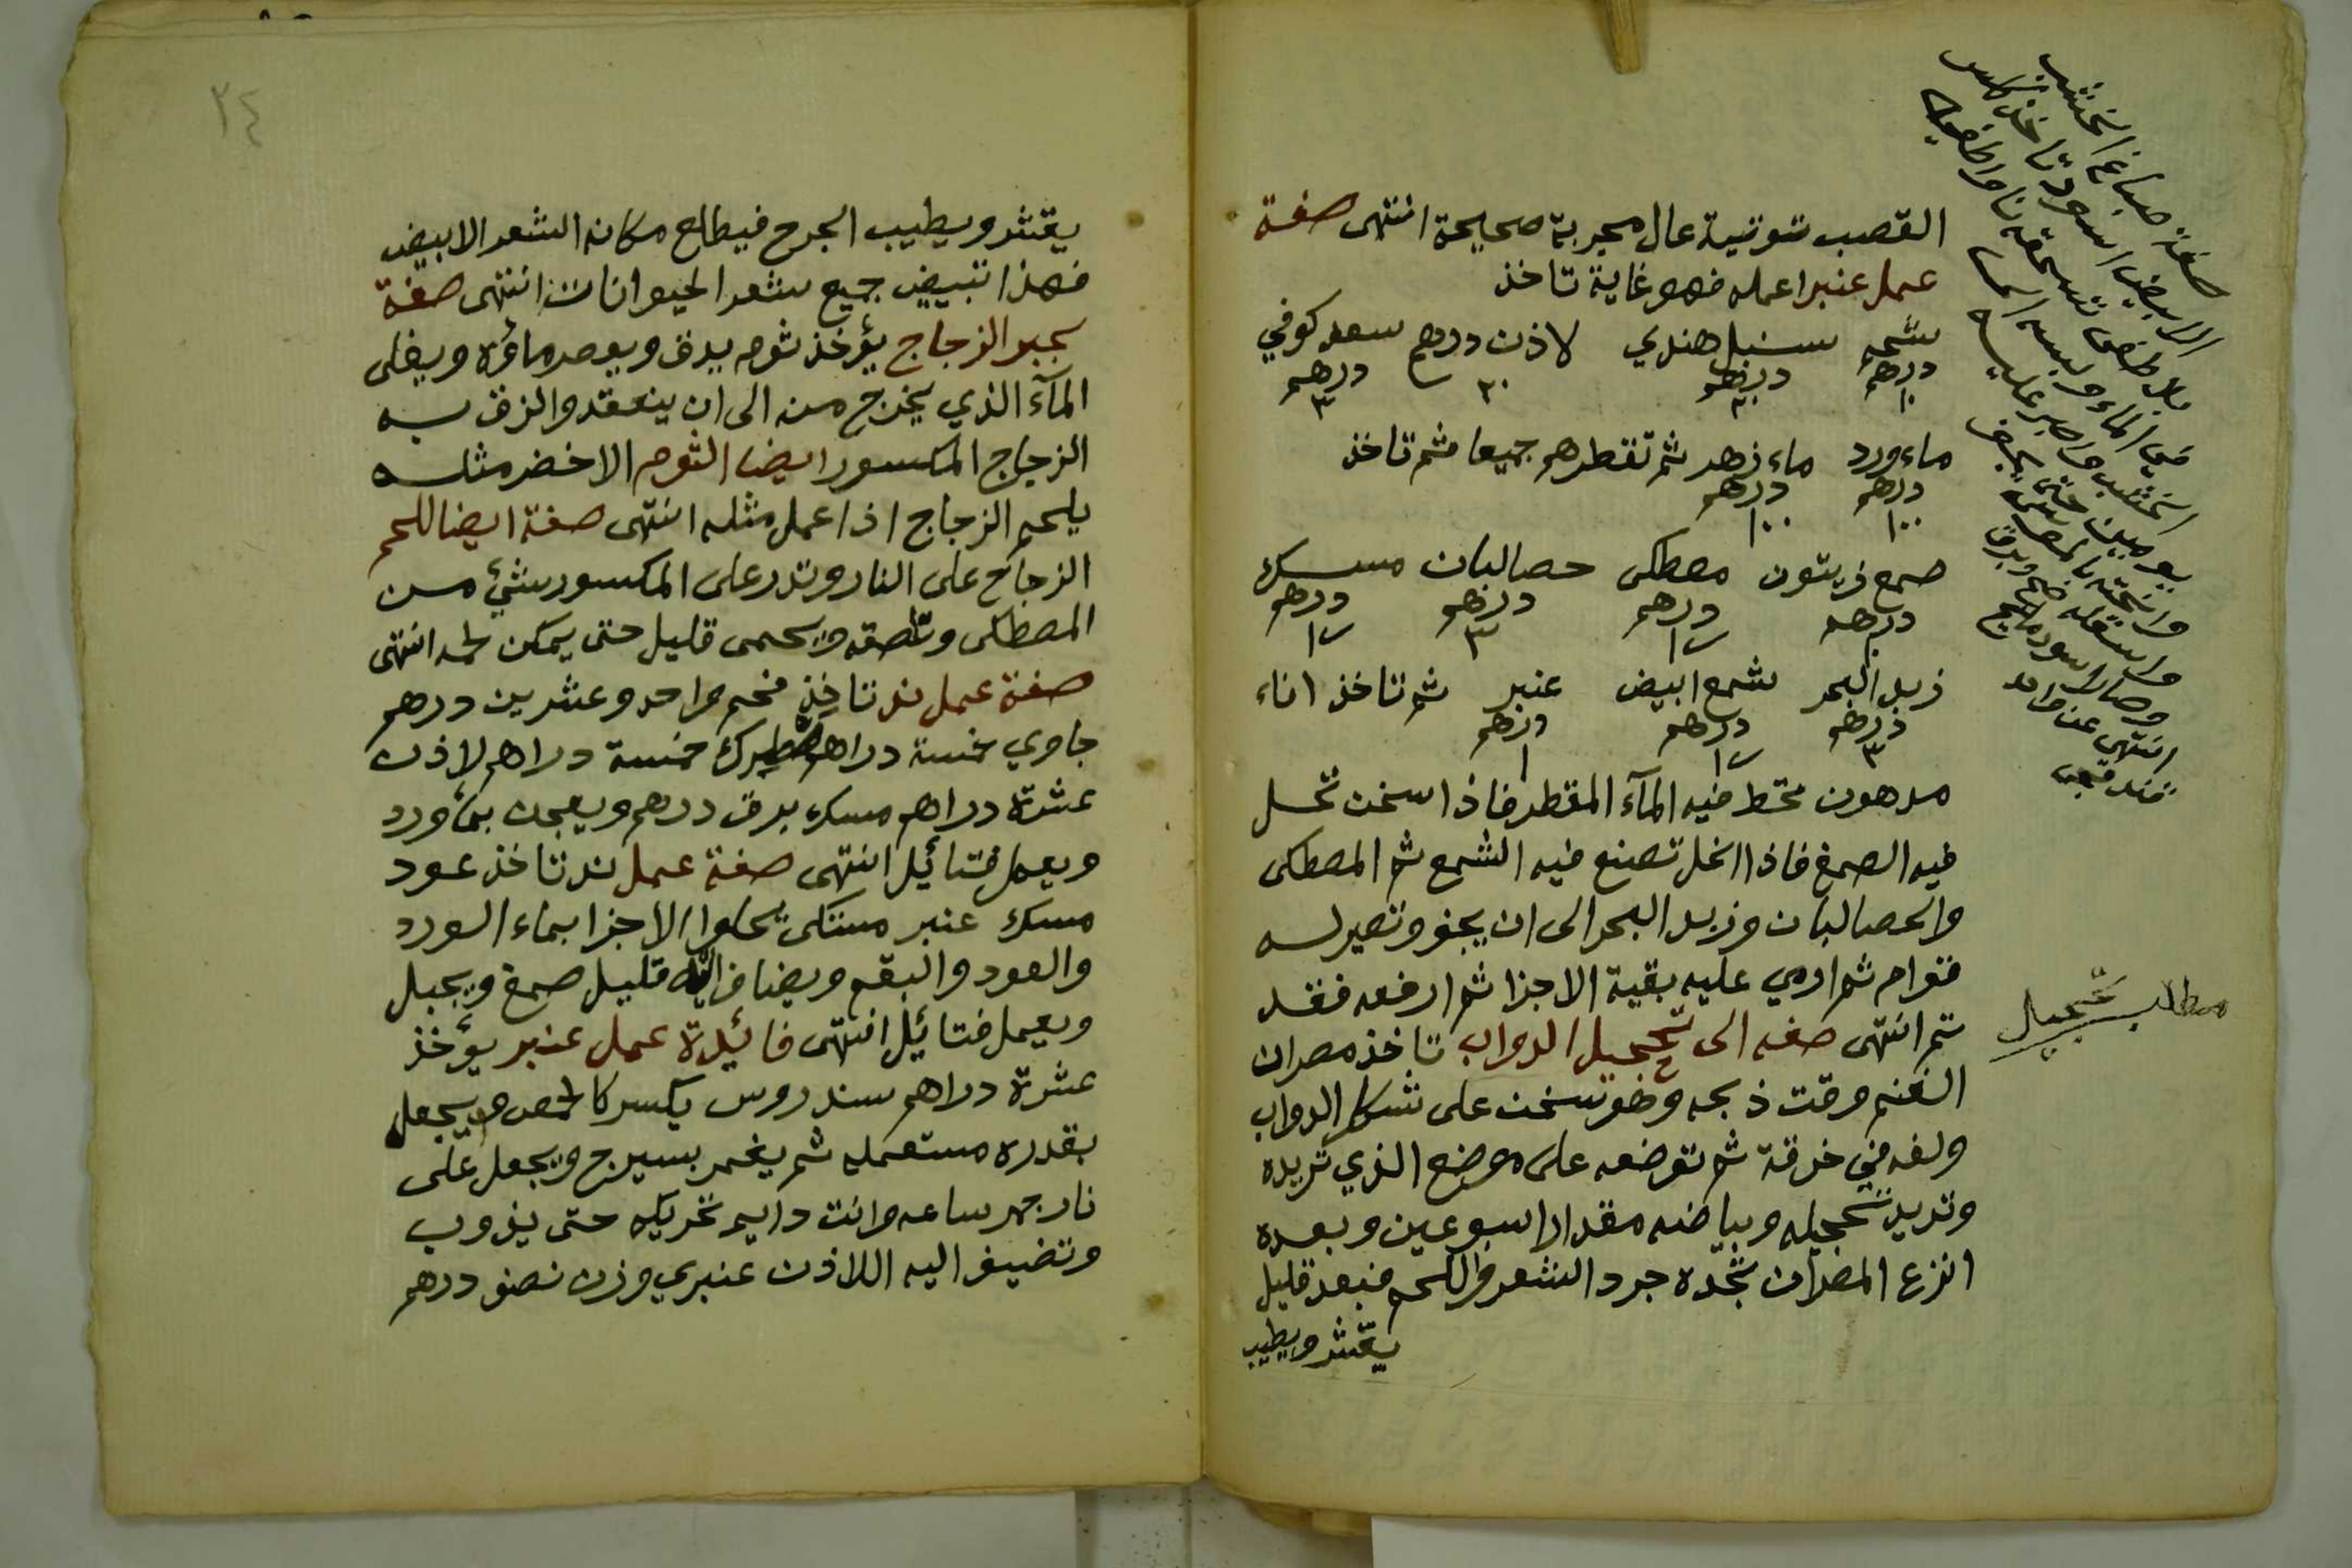 القصب تتوتية عال مجربة صحيحة انتهى صفة
عمل عنبر اعمله فهو غاية تاخذ
سنبل هندي لاذن درهم سعد كوفي
درهم درهم ٣٠ درهم
١٠ ٣٠ ٣
ماء ورد ماء زهر ثم تقطرهم جميعا ثم تاخذ
درهم درهم
١٠٠ ١٠٠
صمغ زيتون مصطكى حصالبان مسك
درهم درهم درهم درهم
زبد البحر شمع ابيض عنبر ثم تاخذ اناء
درهم درهم درهم
٣ ١
مدهون تحط فيه المآء المقطر فاذا سخن تحل
فيه الصمغ فاذا انحل تصنع فيه الشمع ثم المصطكى
والحصالبان وزبد البحر الى ان يجف وتصير له
قوام ثم ارمي عليه بقية الاجزا ثم ارفعه فقد
تم انتهى صفه الى تحجيل الدواب تاخذ مصران
الغنم وقت ذبحه وهو سخن على شكل الدواب
ولفه في خرقة ثم توضعه على موضع الذي تريده
وتريد تحجيله وبياضه مقدار اسبوعين وبعده
انزع المصران تجده جرد الشعر واللحم فبعد قليل
يقشر ويطيب
صفة صباغ الخشب
الابيض اسود تاخذ كلس
بلا طفي تسحقه ناعما واطفيه
في الماء
الخشب واصبر عليه
يومين حتى يجف
وصار اسود مليح
انتهى عن واحد
مطلب تحجيل
٢٤
يقشر ويطيب الجرح فيطلع مكانه الشعر الابيض
فهذا تبييض جميع شعر الحيوانات انتهى صفة
بجبر الزجاج يؤخذ ثوم يدق ويعصر ماؤه ويغلى
المآء الذي يخرج منه الى ان ينعقد والزق به
الزجاج المكسور ايضا الثوم الاخضر مثله
يلحم الزجاج اذا عمل مثله انتهى صفة ايضا للحم
الزجاج على النار وتدر على المكسور شئ من
المصطكى وتلصقه ويحمى قليل حتى يمكن لحمه انتهى
صفة عمل ند تاخذ فحم واحد وعشرين درهم
جاوي خمسة دراهم اصطرك خمسة دراهم لاذن
عشرة دراهم مسك بدق درهم ويعجن بمآورد
ويعمل فتائيل انتهى صفة عمل ند تاخذ عود
مسك عنبر مستكى يحلوا الاجزا بماء الورد
والعود والبقم ويضاف اليه قليل صمغ ويجبل
ويعمل فتائيل انتهى فائيدة عمل عنبر يؤخذ
عشرة دراهم سندروس يكسر كالحمص ويجعل
بقدره مستعمله ثم يغمر بسيرج ويجعل على
نار جمر ساعه وانت دايم تحريكه حتى يذوب
وتضيف اليه اللاذن عنبري وزن نصف درهم